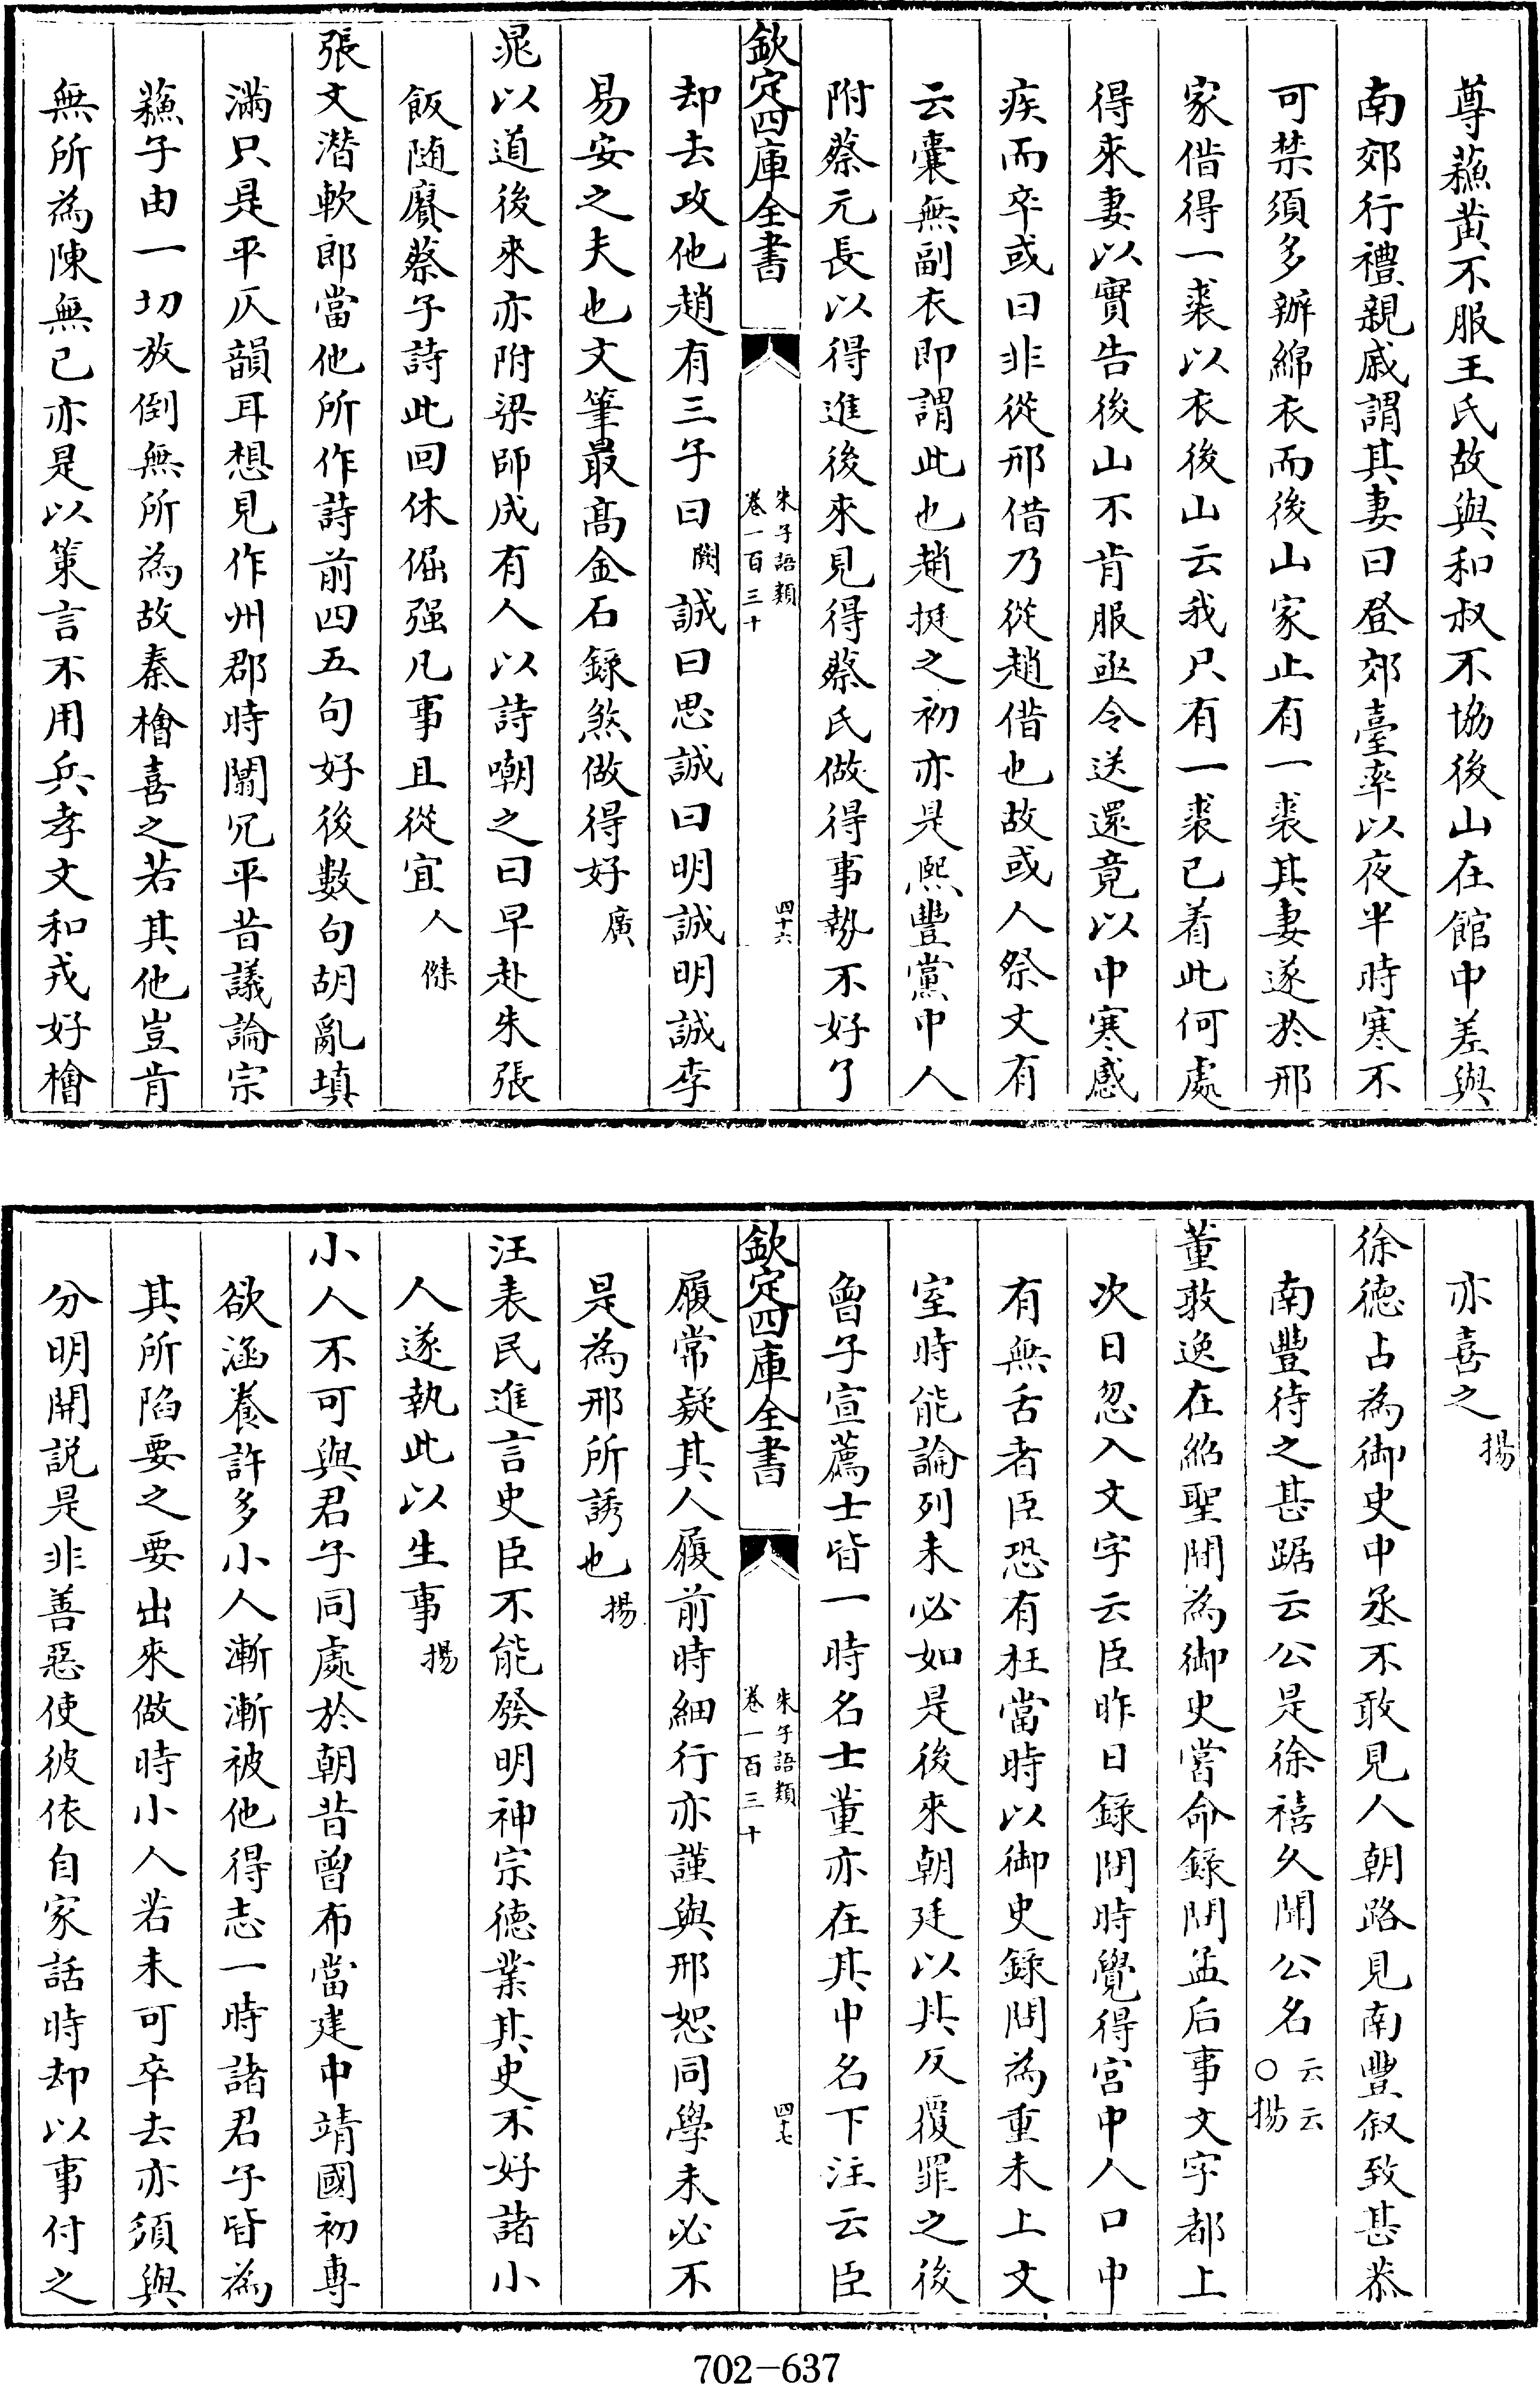 尊蘓黄不服王氏故與和叔不協後山在館中差與
南郊行禮親戚謂其妻曰登郊臺率以夜半時寒不
可禁須多辦綿衣而後山家止有一裘其妻遂於邢
家借得一裘以衣後山云我只有一裘已着此何處
得來妻以實告後山不肯服亟令送還竟以中寒感
疾而卒或曰非從邢借乃從趙借也故或人祭文有
云囊無副衣即謂此也趙挺之初亦是熙豐黨中人
附蔡元長以得進後來見得蔡氏做得事勢不好了
欽定四庫全書
朱子語類
卷一百三十
四十六
却去攻他趙有三子曰闕誠曰思誠曰明誠明誠李
易安之夫也文筆最髙金石錄煞做得好廣
晁以道後來亦附梁師成有人以詩嘲之曰早赴朱張
飯随賡蔡子詩此回休倔强凡事且從宜人傑
張文潛軟郎當他所作詩前四五句好後數句胡亂填
滿只是平仄韻耳想見作州郡時闒冗平昔議論宗
蘓子由一切放倒無所為故秦檜喜之若其他豈肯
無所為陳無已亦是以策言不用兵孝文和戎好檜
亦喜之揚
徐德占為御史中丞不敢見人朝路見南豐叙致甚恭
南豐待之甚踞云公是徐禧久聞公名云云○揚
董敦逸在紹聖間為御史嘗命錄問孟后事文字都上
次日忽入文字云臣昨日錄問時覺得宫中人口中
有無舌者臣恐有枉當時以御史錄問為重未上文
室時能論列未必如是後來朝廷以其反覆罪之後
曾子宣薦士皆一時名士董亦在其中名下注云臣
欽定四庫全書
朱子語類
卷一百三十
四十七
履常疑其人履前時細行亦謹與邢恕同學未必不
是為邢所誘也揚
汪表民進言史臣不能發明神宗德業其史不好諸小
人遂執此以生事揚
小人不可與君子同處於朝昔曾布當建中靖國初專
欲涵養許多小人漸漸被他得志一時諸君子皆為
其所陷要之要出來做時小人若未可卒去亦須與
分明開説是非善惡使彼依自家話時却以事付之
702-637